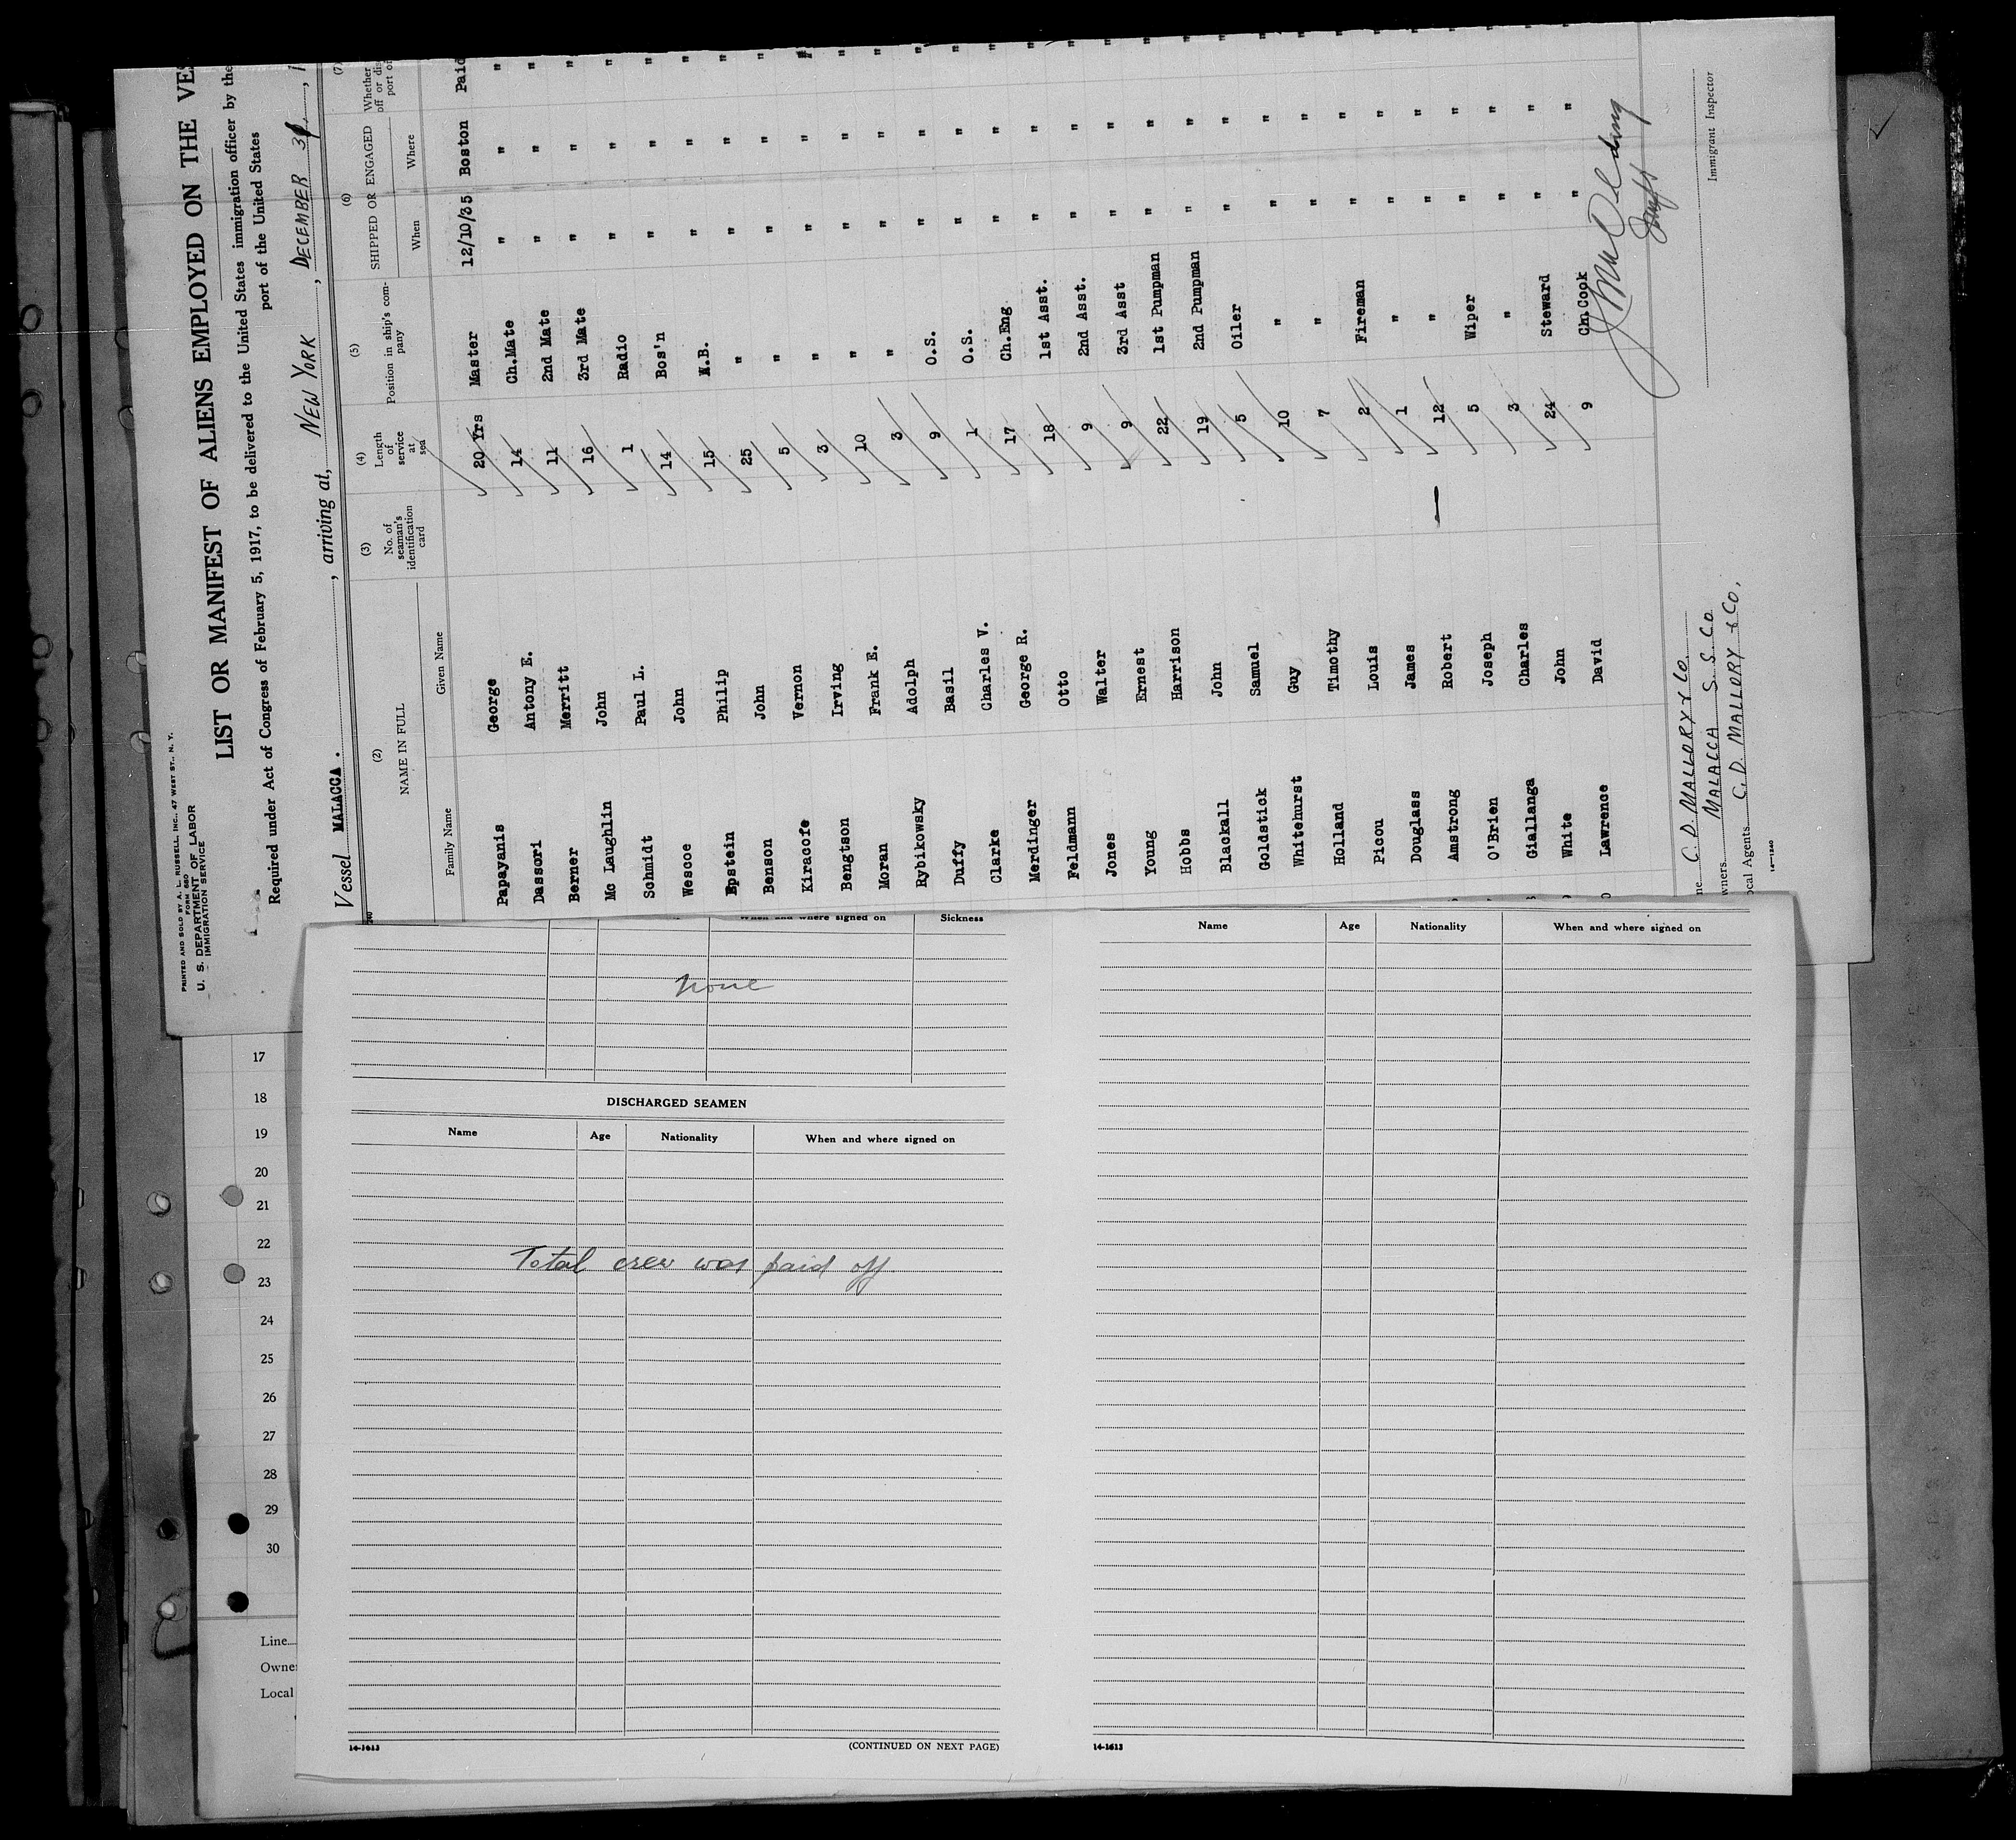 PRINTED AND SOLD BY A. L. RUSSELL, INC., 47 WEST ST., N. Y.
FORM 680
U. S. DEPARTMENT OF LABOR
IMMIGRATION SERVICE
LIST OR MANIFEST OF ALIENS EMPLOYED ON THE VES
Required under Act of Congress of February 5, 1917, to be delivered to the United States immigration officer by the
port of the United States
Vessel MALACCA. , arriving at, NEW YORK , DECEMBER 31 , 1
(2) (3) (4) (5) (6) (7)
NAME IN FULL No. of seaman's identification card Length of service at sea Position in ship's com- pany SHIPPED OR ENGAGED Whether
off or dis
port of
Family Name Given Name When Where
Papayanis George 20 Yrs Master 12/10/35 Boston Paid
Dassori Antony E. 14 Ch.Mate " " "
Berner Merritt 11 2nd Mate " " "
Mc Laughlin John 16 3rd Mate " " "
Schmidt Paul L. 1 Radio " " "
Wescoe John 14 Bos'n " " "
Epstein Philip 15 W.B. " " "
Benson John 25 " " " "
Kiracofe Vernon 5 " " " "
Bengtson Irving 3 " " " "
Moran Frank E. 10 " " " "
Rybikowsky Adolph 3 " " " "
Duffy Basil 9 O.S. " " "
Clarke Charles V. 1 O.S. " " "
Merdinger George R. 17 Ch.Eng " " "
Feldmann Otto 18 1st Asst. " " "
Jones Walter 9 2nd Asst. " " "
Young Ernest 9 3rd Asst " " "
Hobbs Harrison 22 1st Pumpman " " "
Blackall John 19 2nd Pumpman " " "
Goldstick Samuel 5 Oiler " " "
Whitehurst Guy 10 " " " "
Holland Timothy 7 " " " "
Picou Louis 2 Fireman " " "
Douglass James 1 " " " "
Amstrong Robert 12 " " " "
O'Brien Joseph 5 Wiper " " "
Giallanga Charles 3 " " " "
White John 24 Steward " " "
Lawrence David 9 Ch.Cook " " "
ne C. D. MALLORY & CO.
wners MALACCA S. S. CO
ocal Agents C. D. MALLORY & CO.
Immigrant Inspector
14—1240
When and where signed on Sickness
none
DISCHARGED SEAMEN
Name Age Nationality When and where signed on
Total crew was paid off
14-1613 (CONTINUED ON NEXT PAGE)
Name Age Nationality When and where signed on
14-1613
17
18
19
20
21
22
23
24
25
26
27
28
29
30
Line
Owne
Local